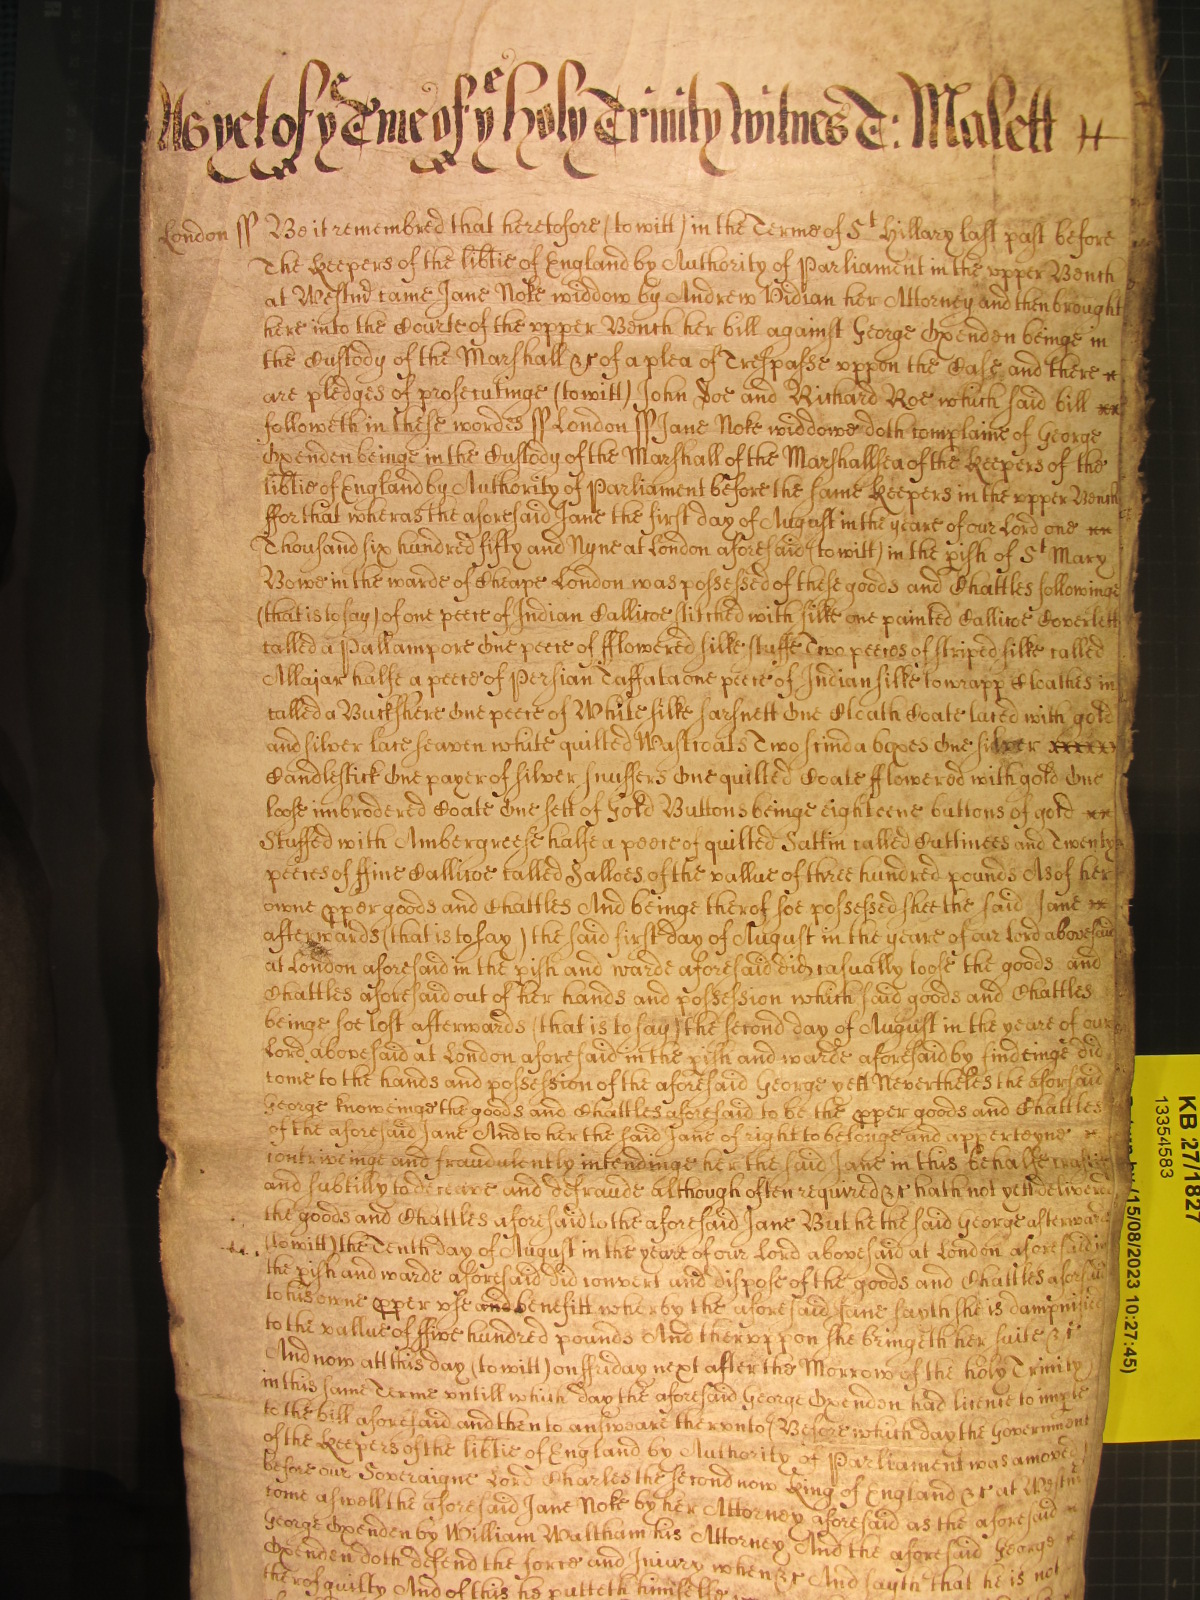 As yet of ye Tme of ye holy Trinity Witnes T: Malett
London ss Be it remembred that heretofore (to witt) in the Terme of St Hillary last past before
The Keepers of the libtie of England by Authority of Parliament in the vpper Bench
at Westmr came Jane Noke widdow by Andrew Vidian her Attorney and then brought
here into the Courte of the vpper Bench her bill against George Oxenden beinge in
the Custody of the Marshall &c of a plea of Trespasse vppon the Case and there
are pledges of prosecutinge (to witt) John Doe and Richard Roe which said bill
followeth in these wordes ss London ss Jane Noke widdowe doth complaine of George
Oxenden beinge in the Custody of the Marshall of the Marshallsea of the Keepers of the
libtie of England by Authority of Parliament before the same Keepers in the vpper Bench
ffor that wheras the aforesaid Jane the first day of August in the yeare of our Lord one
Thousand six hundred fifty and Nyne at London aforesaid (to witt) in the pish of St Mary
Bowe in the warde of Cheape London was possessed of these goods and Chattles followinge
(that is to say) of one peece of Indian Callicoe stitched with silke one painted Callicoe Coverlett
called a Pallampore One peece of fflowered silke stuffe Two peeces of striped silke called
Allajar halfe a peece of Persian Taffata one peece of Indian silke to wrapp Cloathes in
called a Buckshere One peece of White silke sarsnett One Cloath Coate laced with gold
and silver lace seaven white quilted Wastcoats Two scinda boxes One silver
Candlestick One payer of silver snuffers One quilted Coate fflowered with gold One
loose imbrodered Coate One sett of Gold Buttons beinge eighteene buttons of gold
Stuffed with Ambergreese halfe a peece of quilted Sattin called Cuttinees and Twenty
peeces of ffine Callicoe called Salloes of the vallue of three hundred pounds As of her
owne pper goods and Chattles And beinge therof soe possessed shee the said Jane
afterwards (that is to say) the said first day of August in the yeare of our Lord abovesaid
at London aforesaid in the pish and warde aforesaid did casually loose the goods and
Chattles aforesaid out of her hands and possession which said goods and Chattles
beinge soe lost afterwards (that is to say) the second day of August in the yeare of our
Lord abovesaid at London aforesaid in the pish and warde aforesaid by findeinge did
come to the hands and possession of the aforesaid George yett Nevertheles the aforsaid
George knoweinge the goods and Chattles aforesaid to be the pper goods and Chattles
of the aforesaid Jane And to her the said Jane of right to belonge and apperteyne
contriveinge and fraudulently intendinge her the said Jane in this behalfe craftily
and subtilly to deceave and defraude although often required &c hath not yett delivered
the goods and Chattles aforesaid to the aforesaid Jane But he the said George afterward
(to witt) the Tenth day of August in the yeare of our Lord abovesaid at London aforesaid in
the pish and warde aforesaid did convert and dispose of the goods and Chattles aforsaid
to his owne pper vse and benefitt wherby the aforesaid Jane sayth she is dampnified
to the vallue of ffive hundred pounds And thervppon she bringeth her suite &c
And now att this day (to witt) on ffriday next after the Morrow of the holy Trinity
in this same Terme vntill which day the aforesaid George Oxenden had licence to imple
to the bill aforesaid and then to answeare thervnto Before which day the Government
of the Keepers of the libtie of England by Authority of Parliament was amoved
before our Soveraigne Lord Charles the second now King of England &c at Westmr
come aswell the aforesaid Jane Noke by her Attorney aforesaid as the aforesaid
George Oxenden by William Waltham his Attorney And the aforesaid George
Oxenden doth defend the force and Iniury when &c And sayth that he is not
therof guilty And of this he putteth himselfe
KB 27/1827
13354583
(15/08/2023 10:27:45)